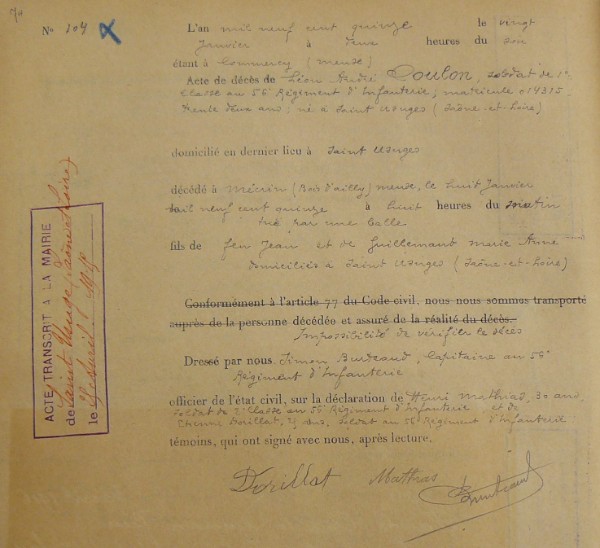 70
No 104
L'an mil neuf cent quinze le vingt
Janvier à deux heures du soir
étant à Commercy (Meuse)
Acte de décès de Léon André Doulon, soldat de 1e
Classe au 56e Régiment d'Infanterie, matricule
trente deux ans; né à Saint Usuges (Saône-et-Loire)
domicilié en dernier lieu à Saint Usuges
décédé à Mécrin (Bois d'ailly) Meuse, le huit Janvier
mil neuf cent quinze à huit heures du matin
tué par une balle
fils de feu Jean et de Guillemant Marie Anne
domiciliés à Saint Usuges (Saône-et-Loire)
Conformément à l'article 77 du Code civil, nous nous sommes transporté
auprès de la personne décédée et assuré de la réalité du décès.
Impossibilité de vérifier le décès
Dressé par nous Simon Capitaine au 56e
Régiment d'Infanterie
officier de l'état civil, sur la déclaration de Henri Mathias, 30 ans,
soldat de 2e Classe au 56e Régiment d'Infanterie et de
Etienne Dorillat, ans, soldat au 56e Régiment d'Infanterie
témoins, qui ont signé avec nous, après lecture.
Dorillat Mathias
ACTE TRANSCRIT A LA MAIRIE
de Saint Usuge (Saône et Loire)
le